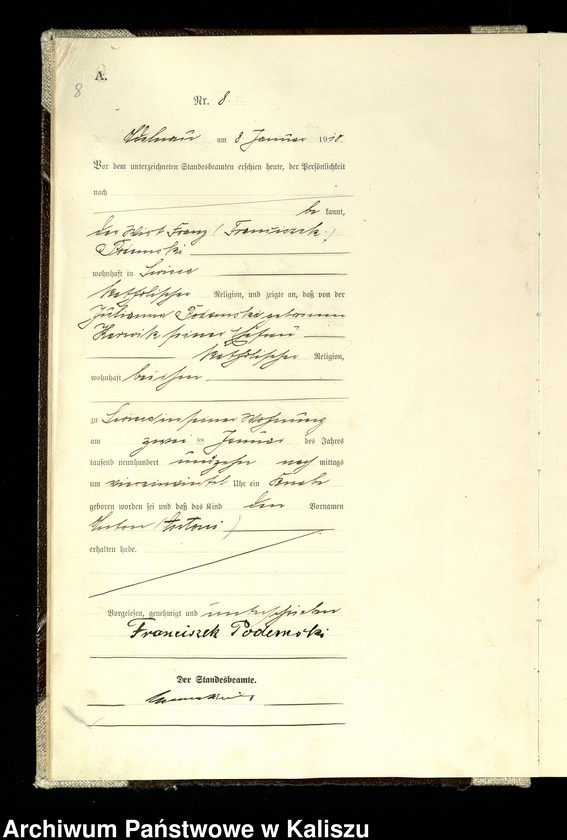 8
A.
Nr. 8.
Adelnau am 8 Januar 1910.
Vor dem unterzeichneten Standesbeamten erschien heute, der Persönlichkeit
nach
be kannt,
der Wirt Franz (Franciszek)
Podemski
wohnhaft in
katholischer Religion, und zeigte an, daß von der
Julianna Podemski geborenen
seiner Ehefrau
katholischer Religion,
wohnhaft bei ihm
zu in seiner Wohnung
am zwei ten Januar des Jahres
tausend neunhundert und zehn nach mittags
um viereinviertel Uhr ein Knabe
geboren worden sei und daß das Kind den Vornamen
Anton (Antoni)
erhalten habe.
Vorgelesen, genehmigt und unterschrieben
Franciszek Podemski
Der Standesbeamte.
Archiwum Państwowe w Kaliszu